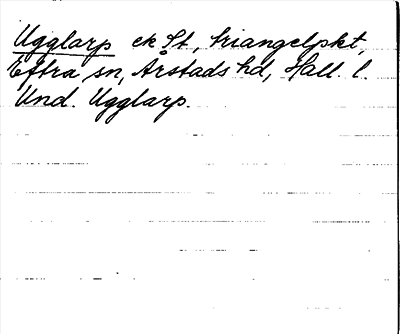 Ugglarp ek St., triangelpkt,
Eftra sn, Årstads hd, Hall. l.
Und. Ugglarp.